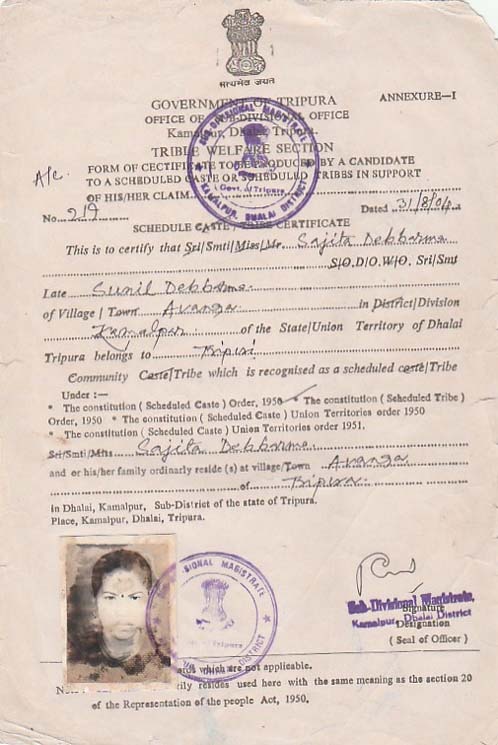 सत्यमेव जयते
GOVERNMENT OF TRIPURA ANNEXURE—I
OFFICE OF SUB-DIVISIONAL OFFICE
Kamalpur, Dhalai Tripura.
TRIBLE WELFARE SECTION
A/c.
FORM OF CECTIFICATE TO BE PRODUCED BY A CANDIDATE
TO A SCHEDULED CASTE OR SCHEDULED TRIBES IN SUPPORT
OF HIS/HER CLAIM
SUB-DIVISIONAL MAGISTRATE
Govt. of Tripura
KAMALPUR, DHALAI DISTRICT
No. 219 Dated 31/8/04
SCHEDULE CASTE / TRIBE CERTIFICATE
This is to certify that Sri/Smti/Miss/Mr. Sajita Debbarma
S/O.D/O.W/O. Sri/Smt
Late Sunil Debbarma
of Village / Town Avanga in District/Division
Kamalpur of the State/Union Territory of Dhalai
Tripura belongs to Tripuri
Community Caste/Tribe which is recognised as a scheduled caste/Tribe
Under :—
* The constitution ( Scheduled Caste ) Order, 1950 * The constitution ( Scheduled Tribe )
Order, 1950 * The constitution ( Scheduled Caste ) Union Territories order 1950
* The constitution ( Scheduled Caste ) Union Territories order 1951.
Sri/Smti/Miss Sajita Debbarma
and or his/her family ordinarly reside (s) at village/Town Avanga
of Tripura
in Dhalai, Kamalpur, Sub-District of the state of Tripura.
Place, Kamalpur, Dhalai, Tripura.
SIONAL MAGISTRATE
of Tripura
DISTRICT
Sub-Divisional Magistrate,
Signature
Kamalpur, Dhalai District
Designation
( Seal of Officer )
ards which are not applicable.
Note rily resides used here with the same meaning as the section 20
of the Representation of the people Act, 1950.